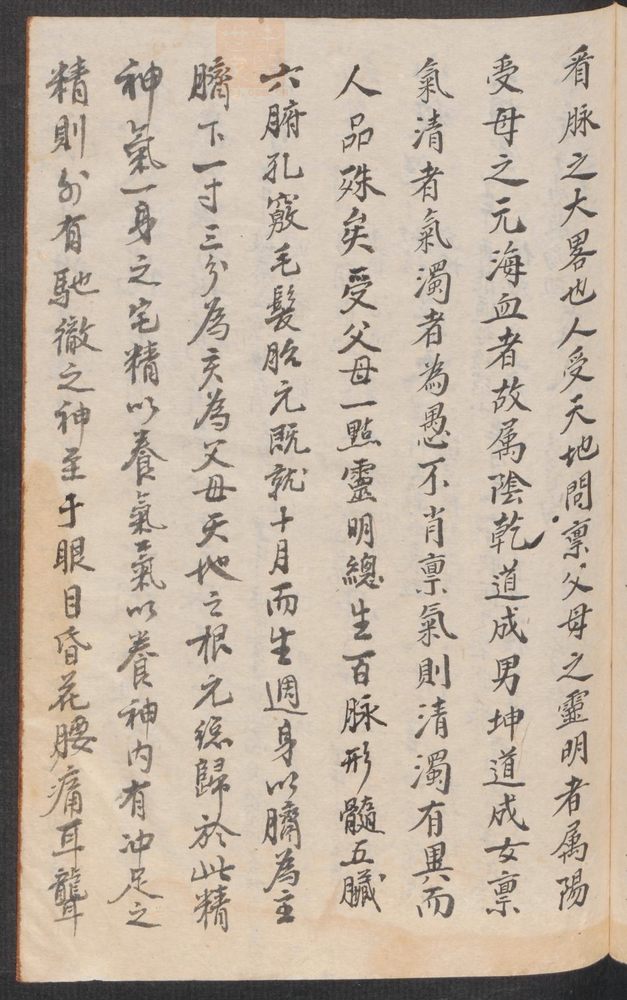 看脉之大畧也人受天地問禀父母之靈明者属陽
受母之元海血者故属陰乾道成男坤道成女禀
氣清者氣濁者為愚不肖禀氣則清濁有異而
人品殊矣受父母一點靈明總生百脉形髓五臟
六腑孔竅毛髮胎元既就十月而生週身以臍為主
臍下一寸三分為亥為父母天地之根元總歸於此精
神氣一身之宅精以養氣氣以養神内有冲足之
精則外有馳徹之神至于眼目昏花腰痛耳聾